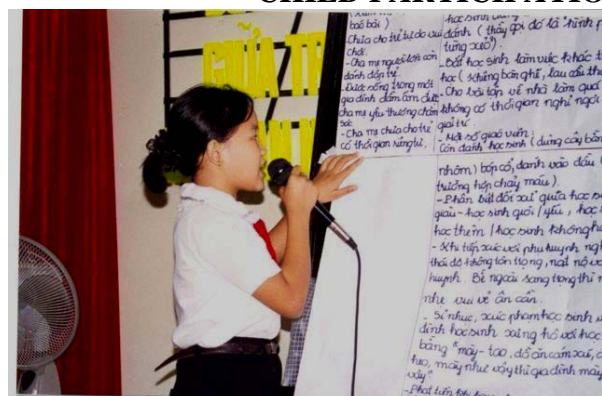 CHILD PARTICIPATIO
GIỮA TR
bác bài)
- Chưa cho trẻ tự do vui
chơi.
- Cha mẹ người lớn còn
đánh đập trẻ.
- Được sống trong một
gia đình đầm ấm được
cha mẹ yêu thương chăm
sóc.
- Cha mẹ chưa cho trẻ
có thời gian riêng tư.
học sinh
đánh (thầy gọi đó là "hình p
từng xưở).
- Bắt học sinh làm việc khác t
học (khiêng bàn ghế, lau cầu tha
- Cho bài tập về nhà làm quá
không có thời gian nghỉ ngơi
giải trí.
- Một số giáo viên
còn đánh học sinh (dùng cây bản
nhóm) bóp cổ, đánh vào đầu (
trường hợp chảy máu)
- Phân biệt đối xử giữa học si
giàu - học sinh giỏi / yếu, học s
học thêm / học sinh không h
- Khi tiếp xúc với phụ huynh ng
thái độ không tôn trọng, nạt nộ v
huynh. Bề ngoài sang trọng thì n
nhẹ vui vẻ ân cần.
- Sỉ nhục, xúc phạm học sinh v
đình học sinh xưng hô với học
bằng "mày - tao, đồ ăn cám xú, 
tao, mày như vậy thì gia đình mày
vậy"
- Phát tiền